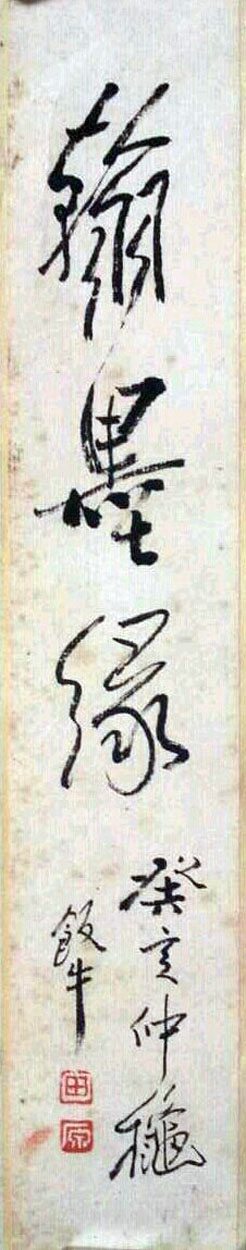 翰墨緣
癸亥仲穐
飯牛
田
原